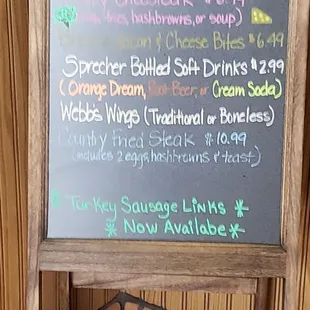 fries, hashbrowns, or soup)
Bacon & Cheese Bites $6.49
Sprecher Bottled Soft Drinks $2.99
(Orange Dream, Root Beer, or Cream Soda)
Webb's Wings (Traditional or Boneless)
Country Fried Steak $10.99
(includes 2 eggs, hashbrowns & toast)
* Turkey Sausage Links *
* Now Availabe *